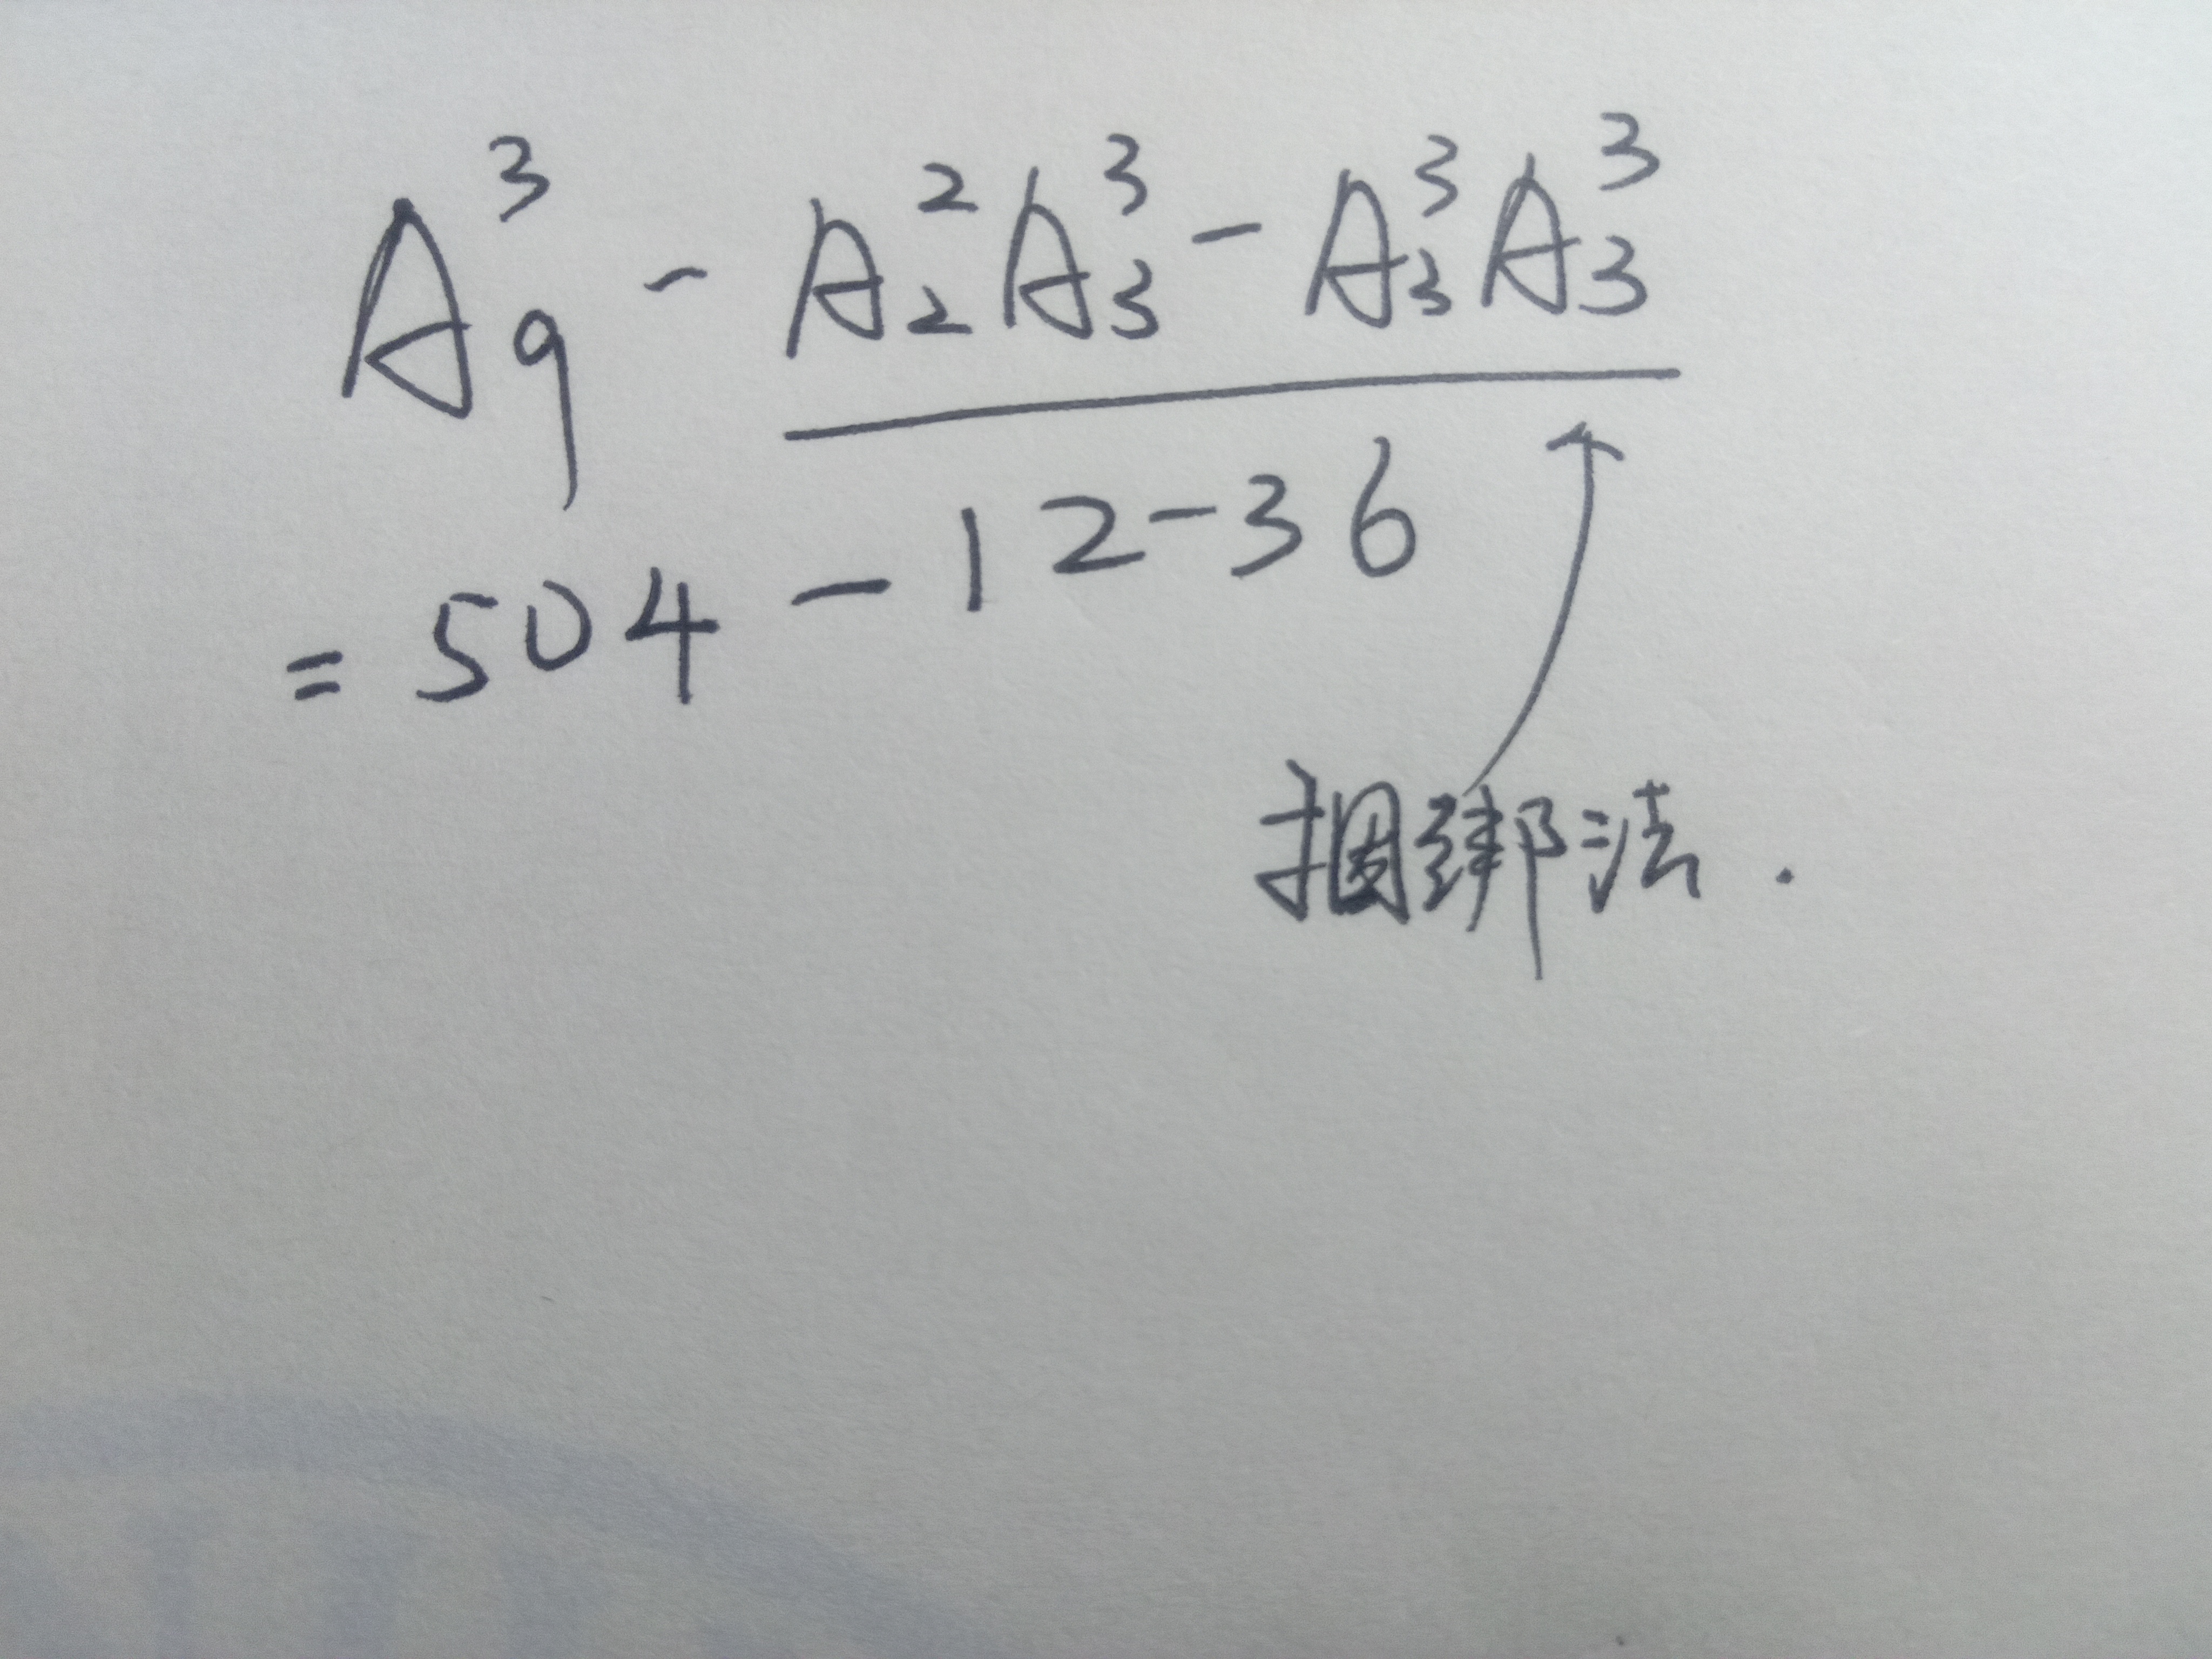 A₉³ - A₂²A₃³ - A₃³A₃³
= 504 - 12 - 36
捆绑法.